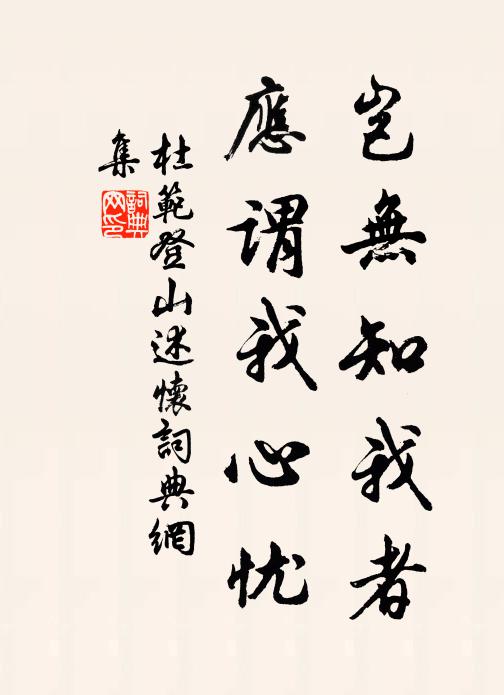 豈無知我者
應謂我心忧
杜範登山述懷詞典網
集
詞典
网印